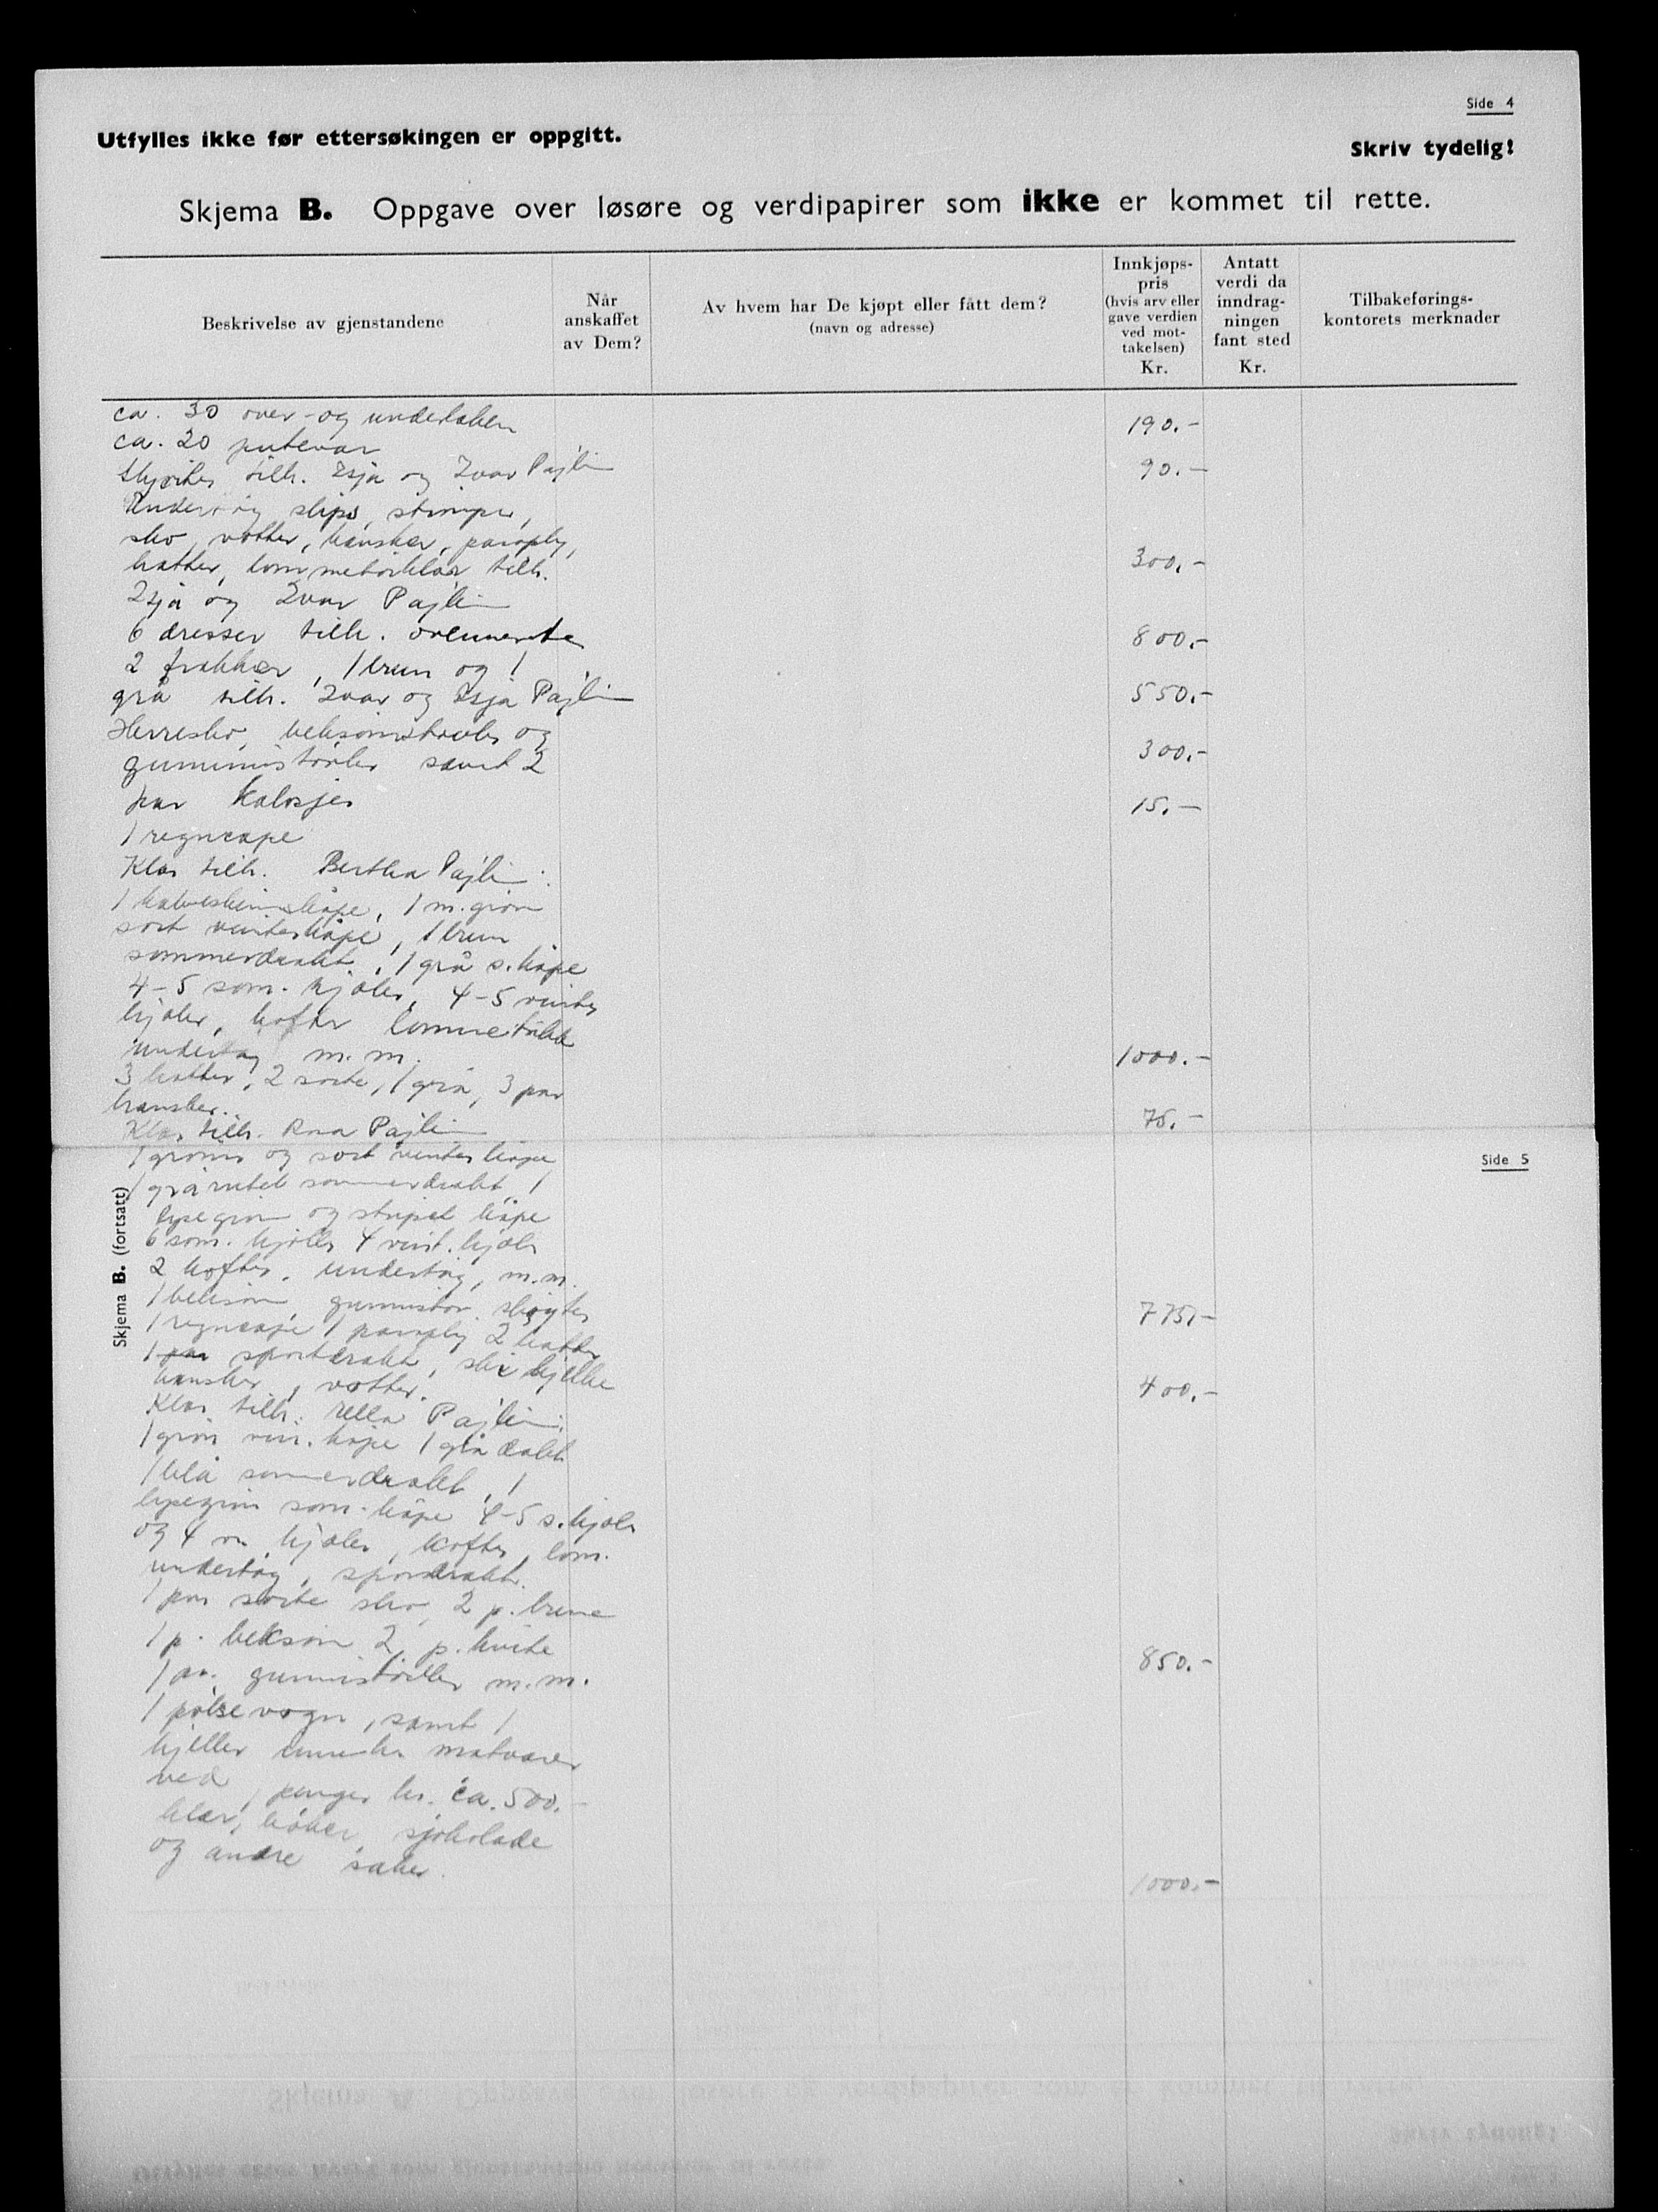 Side 4
Utfylles ikke før ettersøkingen er oppgitt.
Skriv tydelig!
Skjema B. Oppgave over løsøre og verdipapirer som ikke er kommet til rette.
Beskrivelse av gjenstandene
Når anskaffet av Dem?
Av hvem har De kjøpt eller fått dem? (navn og adresse)
Innkjøps-pris (hvis arv eller gave verdien ved mot-takelsen) Kr.
Antatt verdi da inndrag-ningen fant sted Kr.
Tilbakeførings-kontorets merknader
ca. 30 over- og underlaken 190.-
ca. 20 putevar
Skjorter tilh. Isja og Ivar Pajlin 90.-
Undertøy slips, strømper,
sko, votter, hansker, paraply,
hatter, lommetørklær tilh. 300.-
Isja og Ivar Pajlin
6 dresser tilh. ovennevnte 800.-
2 frakker, 1 brun og 1
grå tilh. Ivar og Isja Pajlin 550.-
Herresko, beksømstøvler og
gummistøvler samt 2 300.-
par kalosjer
1 regncape 15.-
Klær tilh. Bertha Pajlin:
1 kalveskinnskåpe, 1 m. grøn
sort vinterkåpe, 1 brun
sommerdrakt, 1 grå s. kåpe
4-5 som. kjoler, 4-5 vinter
kjoler, kofter lommetørkl
undertøy m. m. 1000.-
3 hatter, 2 sorte, 1 grå, 3 par
hansker. 75.-
Klær tilh. Rosa Pajlin
1 grønn og sort vinterkåpe
Side 5
Skjema B. (fortsatt)
1 grårutet sommerdrakt, 1
lysegrøn og stripet kåpe
6 som. kjoler 4 vint. kjoler
2 kofter, undertøy, m.m.
1 beksøm, gummistøv. skøyter 775,-
1 regncape 1 paraply 2 hatter
1 par sportdrakt, ski kjelke
hansker, votter. 400.-
Klær tilh. Rella Pajlin:
1 grøn vin. kåpe 1 grå drakt
1 blå sommerdrakt, 1
lysegrøn som. kåpe 4-5 s. kjoler
og 4 v. kjoler, kofter, lom.
undertøy, sportdrakt.
1 par sorte sko, 2 p. brune
1 p. beksøm 2 p. hvite
1 par. gummistøvler m.m. 850.-
1 pølsevogn, samt 1
kjeller matvarer
ved, penger kr. ca. 500.-
klær, bøker, sjokolade
og andre saker. 1000.-